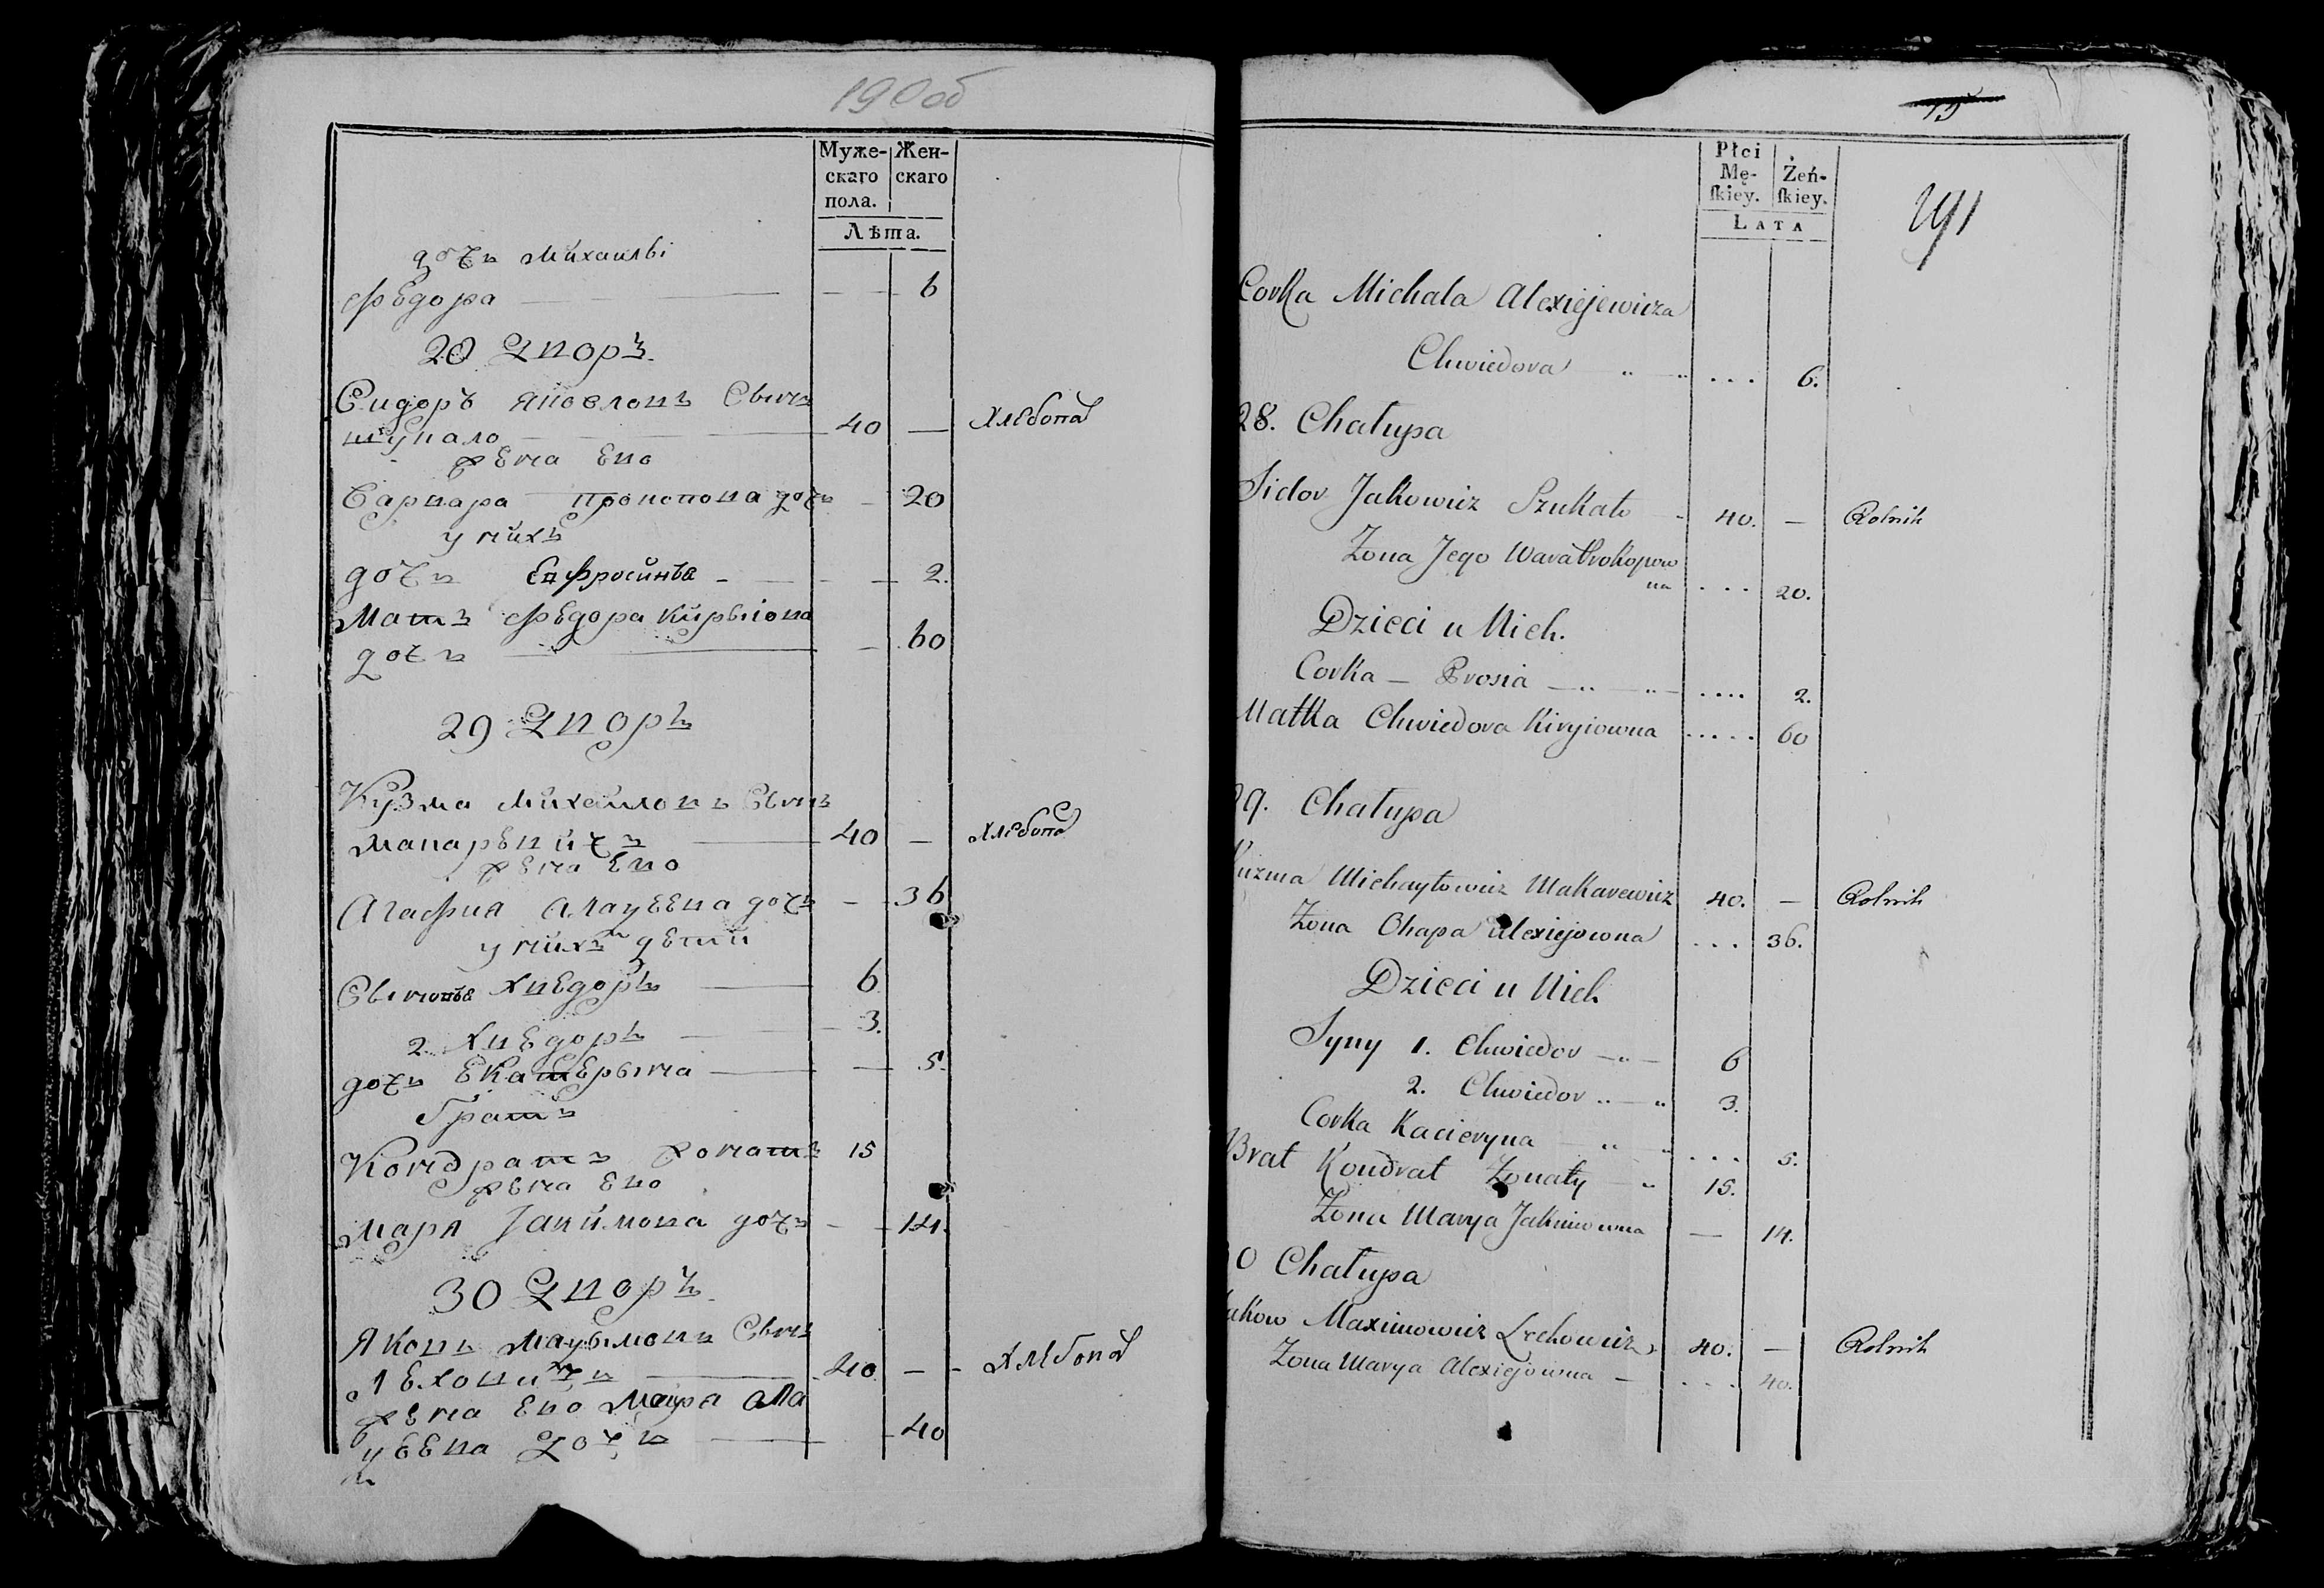 190об
Муже-
скаго
пола.
Жен-
скаго
Лѣта.
дочь Михайлы
Федора — 6
28 Дворъ.
Сидоръ Яковловъ Сынъ
шукало — 40 — Хлебопа
жена Его
Варвара прокопова дочь — 20
у нихъ
дочь Евфросинья — 2.
Мать Федора Кирыіова
дочь — 60
29 Дворъ
Кузма Михайловъ Сынъ
макаревичь — 40 — Хлебопа
жена Его
Агафия Алацеева дочь — 36
у нихъ дети
Сыновья Хведоръ — 6
2. Хведоръ — 3.
дочь Екатерына — 5.
братъ
Кондратъ жонатъ 15
жена Его
мара Јакимова дочь — 14.
30 Дворъ.
Яковъ Мацымовъ Сынъ
Лехович — 40 — Хлебопа
жена Его Мацра Ала
цеева дочь — 40
15
191
Płci
Mę-
ſkiey.
Żeń-
ſkiey.
LATA
Corka Michała Alexiejewicza
Chwiedora „ — „ ... 6.
28. Chałupa
Sidor Jakowicz Szukało - 40. — Rolnik
Zona Jego Wara Prokopow
na ... 20.
Dzieci u Nich.
Corka — Prosia — „ — „ — .... 2.
Matka Chwiedora Kiryiowna ..... 60
29. Chałupa
Kuzma Michayłowicz Makarewicz 40. — Rolnik
Zona Ohapa Alexiejowna ... 36.
Dzieci u Nich
Syny 1. Chwiedor — „ — 6
2. Chwiedor „ — „ 3.
Corka Kacieryna — „ — „ .... 5.
Brat Kondrat Zonaty — „ 15.
Zona Marya Jakimowna — 14.
30 Chałupa
Jakow Maximowicz Lechowicz 40. — Rolnik
Zona Marya Alexiejowna — .... 40.